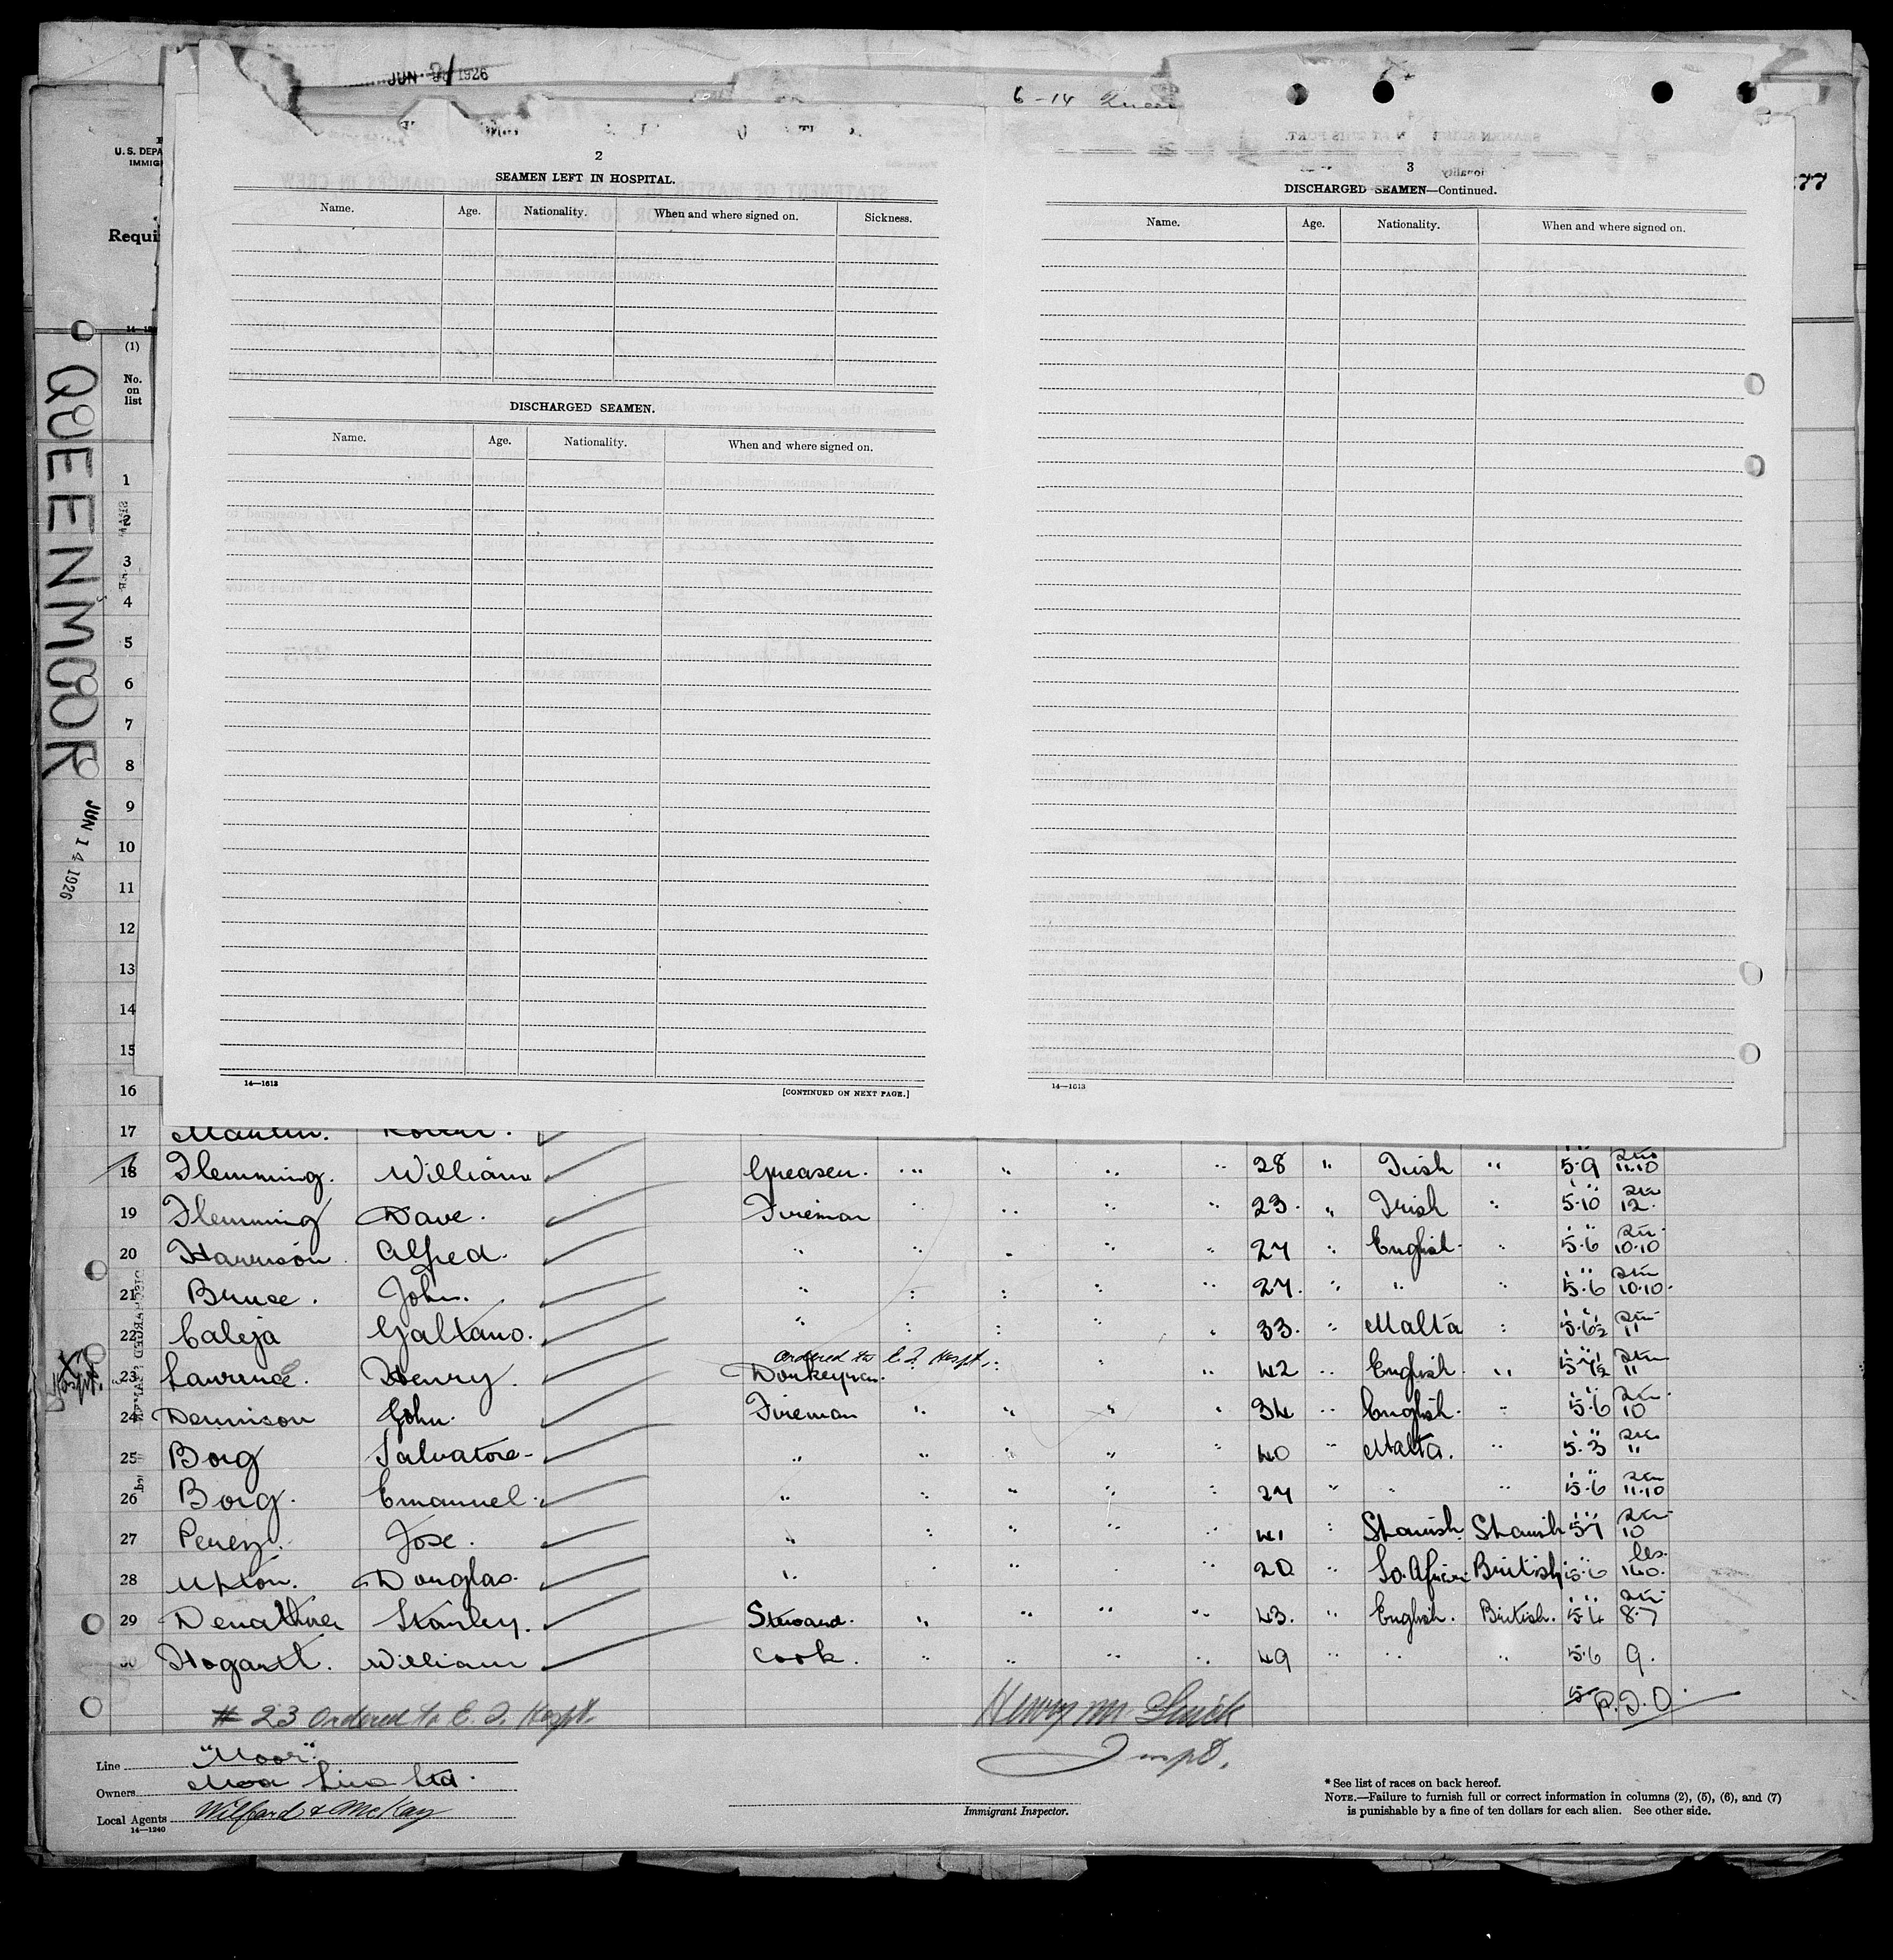 JUN 1926
6-14
U. S. DEPA
IMMIG
Requi
77
2
SEAMEN LEFT IN HOSPITAL.
Name. Age. Nationality. When and where signed on. Sickness.
DISCHARGED SEAMEN.
Name. Age. Nationality. When and where signed on.
14—1613
[CONTINUED ON NEXT PAGE.]
3
DISCHARGED SEAMEN—Continued.
Name. Age. Nationality. When and where signed on.
14—1613
QUEENMOOR
JUN 14 1926
(1)
No.
on
list
1
2
3
4
5
6
7
8
9
10
11
12
13
14
15
16
17 Martin. Robert.
18 Flemming. William Greaser. " " " " 28 " Irish " 5.9 11.10
19 Flemming Dave. Fireman " " " " 23. " Irish " 5.10 12.
20 Harrison Alfred. " " " " " 27 " English. " 5.6 10.10
21 Bruce. John. " " " " " 27. " " " 5.6 10.10.
22 Caleja Galtano. " " " " " 33. " Malta " 5.6½ 11
ordered to E. I. Hospt.
Hospt. 23 Laurence. Henry. Donkeyman. " " " 42 " English. " 5.7½ 11
24 Dennison John. Fireman " " " " 34 " English. " 5.6 10
25 Borg Salvatore " " " " " 40 " Malta. " 5.3 11
26 Borg. Emanuel. " " " " " 27 " " " 5.6 11.10
27 Perez. Jose. " " " " " 41 " Spanish. Spanish 5.7 10
28 Upton. Douglas. " " " " " 20 " So. African British 5.6 lbs. 160.
29 Stanley. Steward. " " " " 43. " English. British. 5.4 8.7
30 Hogartt. William Cook. " " " " 49 " " " 5.6 9.
# 23 Ordered to E. I. Hospt. Henry M. Inspt. P.I.O.
Line "Moor".
Owners Moor Line Ltd.
Local Agents Wilford & McKay
14—1240
Immigrant Inspector.
* See list of races on back hereof.
NOTE.—Failure to furnish full or correct information in columns (2), (5), (6), and (7)
is punishable by a fine of ten dollars for each alien. See other side.